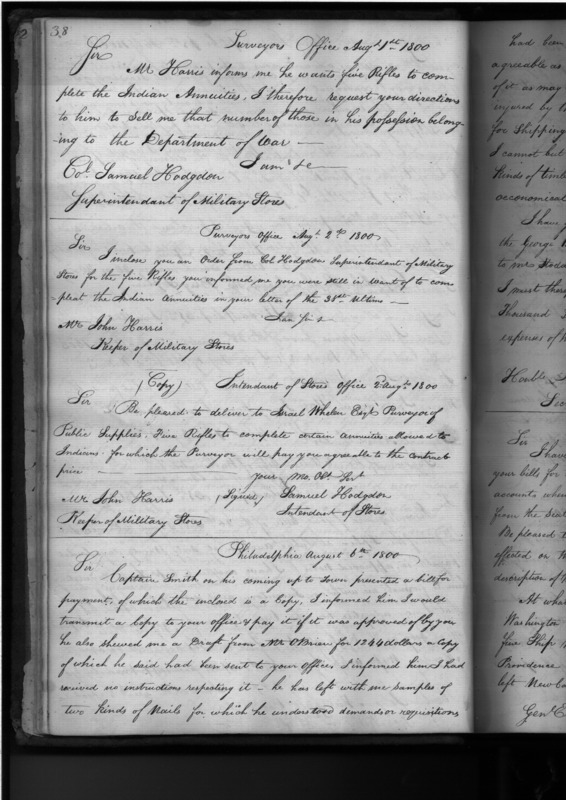 38
Purveyors Office Augt 1st 1800
Sir
Mr Harris informs me he wants five Rifles to com-
plete the Indian Annuities, I therefore request your directions
to him to sell me that number of those in his possession belong-
ing to the Department of War —
I am &c
Col. Samuel Hodgdon
Superintendant of Military Stores
Purveyors Office Augt 2nd 1800
Sir
I inclose you an Order from Col Hodgdon Superintendant of Military
Stores for the five Rifles you informed me you were still in want of to com-
-pleat the Indian Annuities in your letter of the 30st Ultimo —
I am Sir &
Mr John Harris
Keeper of Military Stores
(Copy) Intendant of Stores Office 2d Augt 1800
Sir
Be pleased to deliver to Israel Whelen Esqr Purveyor of
Public Supplies, Five Rifles to complete certain Annuities allowed to
Indians, for which the Purveyor will pay you agreeable to the contract
price — your Mo. Obt Servt
Mr John Harris (Signed) Samuel Hodgdon
Keeper of Military Stores Intendant of Stores
Philadelphia August 6th 1800
Sir
Captain Smith on his coming up to Town presented a bill for
payment, of which the inclosed is a Copy, I informed him I would
transmit a Copy to your office & pay it if it was approved of by you
he also shewed me a Draft from Mr O'Brien for 1244 dollars a Copy
of which he said had been sent to your Office, I informed him I had
received no instructions respecting it — he has left with me samples of
two kinds of Nails for which he understood demands or requisitions
had been
agreeable as
of it as may
injured by t
for Shipping
I cannot but
Kinds of timb
oeconomical
I have
the George
to me
I must there
Thousand
expenses of
Honble
Sec
Sir
I have
your bills for
accounts when
from the Seat
Be pleased t
effected on
description of
At what
Washington
five Ship
Providence
left New Ca
Genl